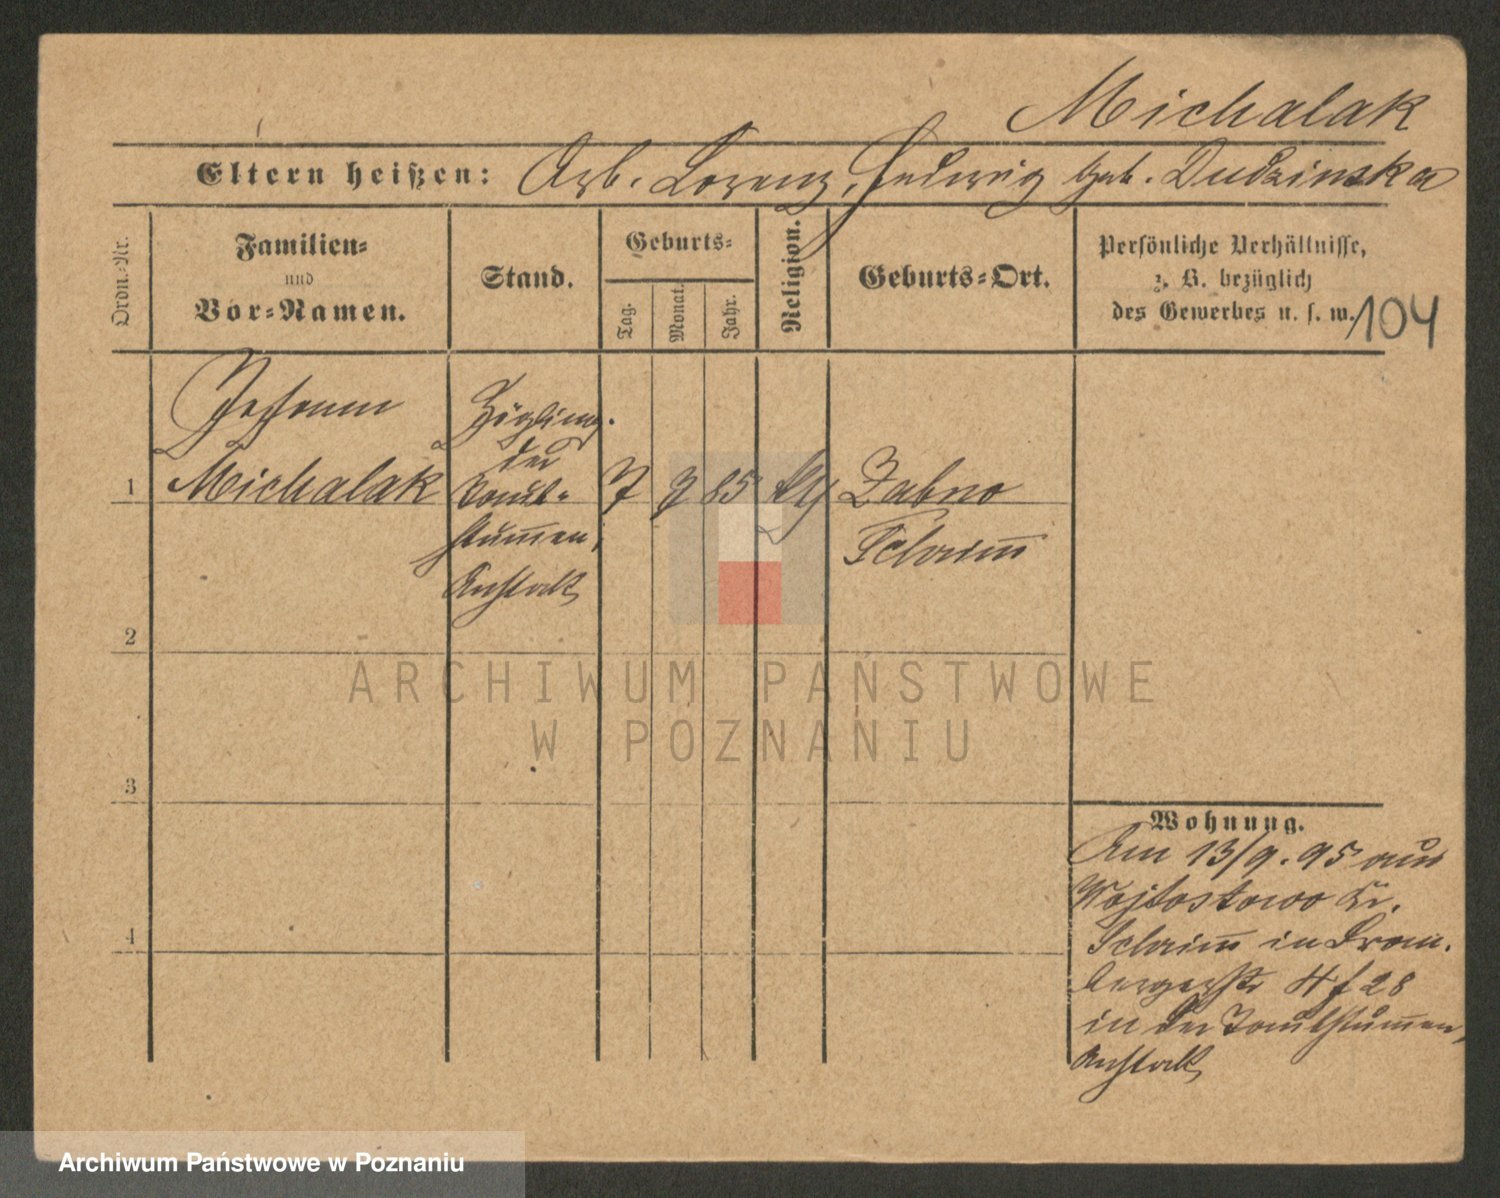 Michalak
Eltern heißen: Arb. Lorenz, Hedwig geb. Dudzinska
Ordn.-Nr.
Familien-
und
Vor-Namen.
Stand.
Geburts-
Tag.
Monat.
Jahr.
Religion.
Geburts-Ort.
Persönliche Verhältnisse,
z. B. bezüglich
des Gewerbes u. s. w.
104
Johann
Michalak
Zögling
der
Taub-
stummen
Anstalt
1
7
85
Zabno
Schrimm
2
3
4
Wohnung.
Am 13/9. 95 aus
Wojtostowo Kr.
Schrimm in Brom-
bergerstr 28
in der Taubstummen
Anstalt
ARCHIWUM PAŃSTWOWE
W POZNANIU
Archiwum Państwowe w Poznaniu